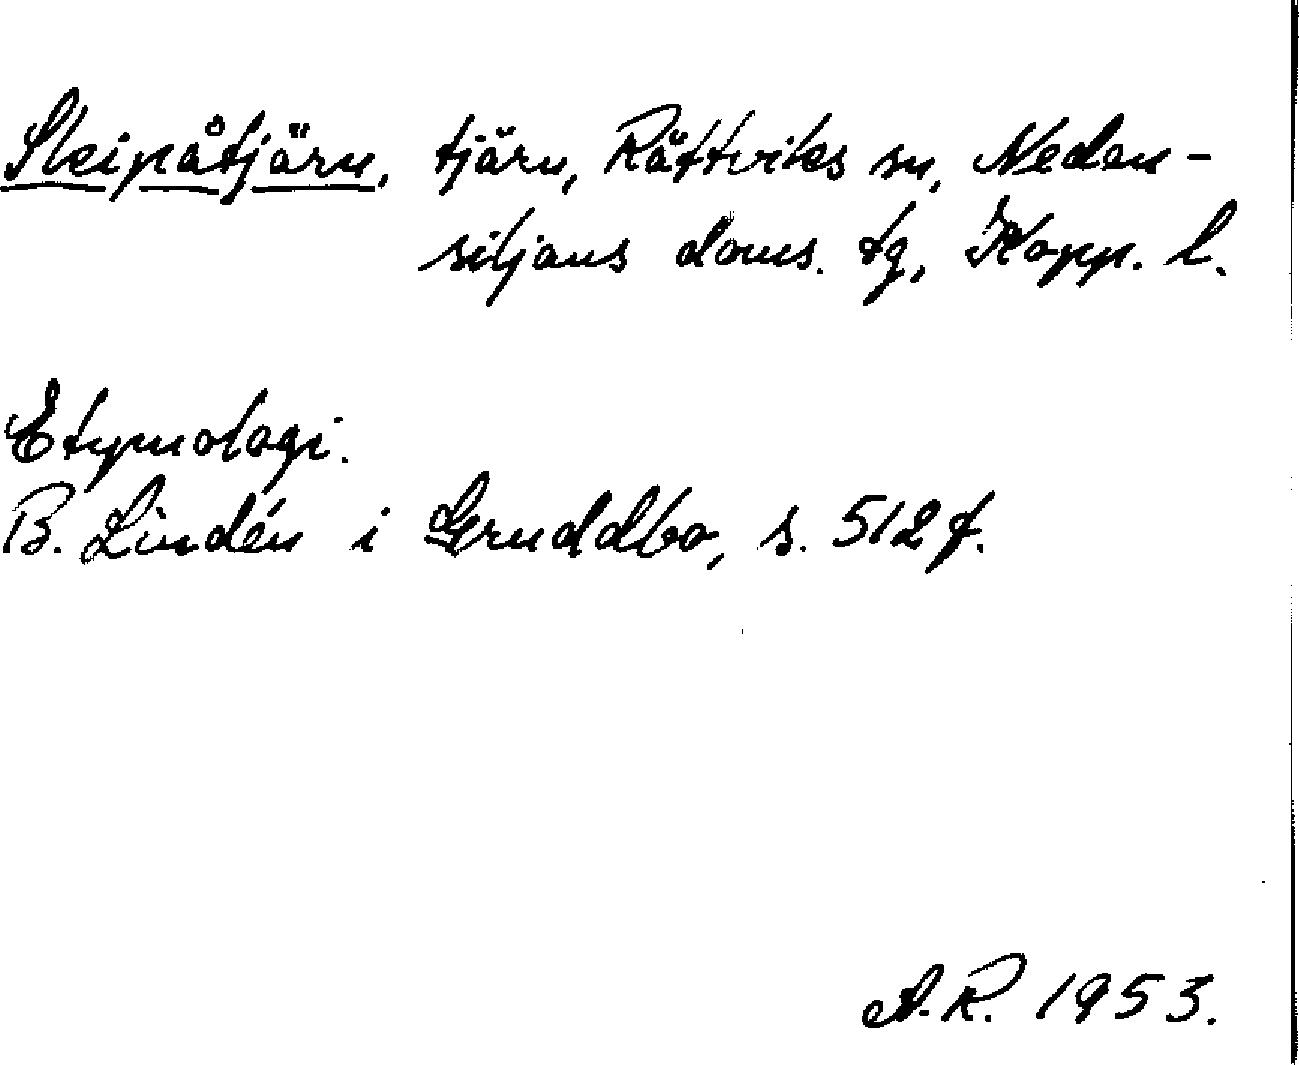 Sleipåtjärn, tjärn, Rättviks sn, Neden-
siljans doms. tg, Kopp. l.
Etymologi.
B. Lindén i Gruddbo, s. 512 f.
A.R. 1953.